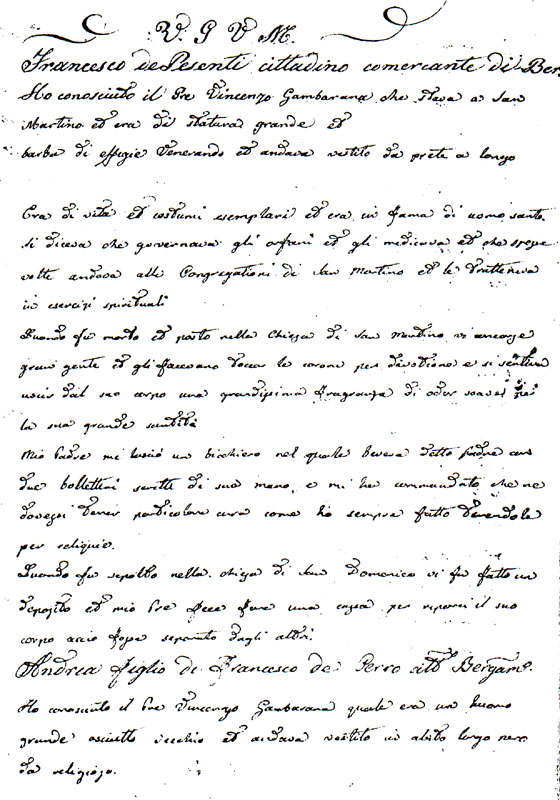 V. G V M.
Francesco de Pesenti cittadino comercante di Ber
Ho conosciuto il Pre Vincenzo Gambarana che stava a san
Martino et era di statura grande et
barba di effigie Venerando et andava vestito da prete a longo
Era di vita et costumi esemplari et era in fama di uomo santo.
si diceva che governava gli orfani et gli medicava et che spesse
volte andava alle Congregationi di san Martino et le tratteneva
in esercizi spirituali
Quando fu morto et posto nella Chiesa di san Martino vi
gran gente et gli facevano toccar le corone per devotione e si sentiva
uscir dal suo corpo una grandissima fragranza di odor soavei per
la sua grande santità
Mio Padre mi lasciò un bichiero nel quale beveva detto Padre con
due bollettini scritti di sua mano, e mi ha commandato che ne
dovessi tener particolare cura come ho sempre fatto tenendole
per reliquie.
Quando fu sepolto nella chiesa di san Domenico vi fu fatto un
deposito et mio Pre fece fare una cassa per riporvi il suo
corpo acciò fosse separato dagli altri.
Andrea figlio di Francesco de Ferro Bergamo.
Ho conosciuto il Pre Vincenzo Gambarana quale era un huomo
grande asciutto vecchio et andava vestito in abito longo nero
da religioso.